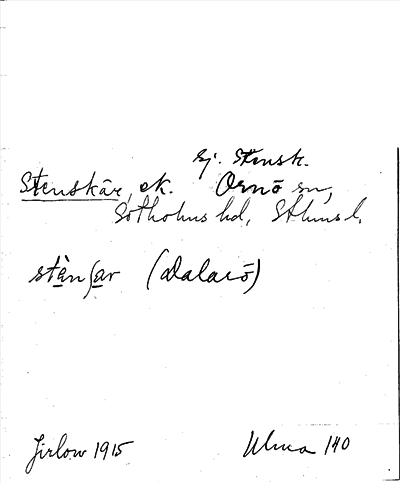 ej. Stensk.
Stenskär, sk. Ornö sn,
Sotholms hd, Sthms l.
stèn∫ar (Dalarö)
Jirlow 1915 Ulma 140